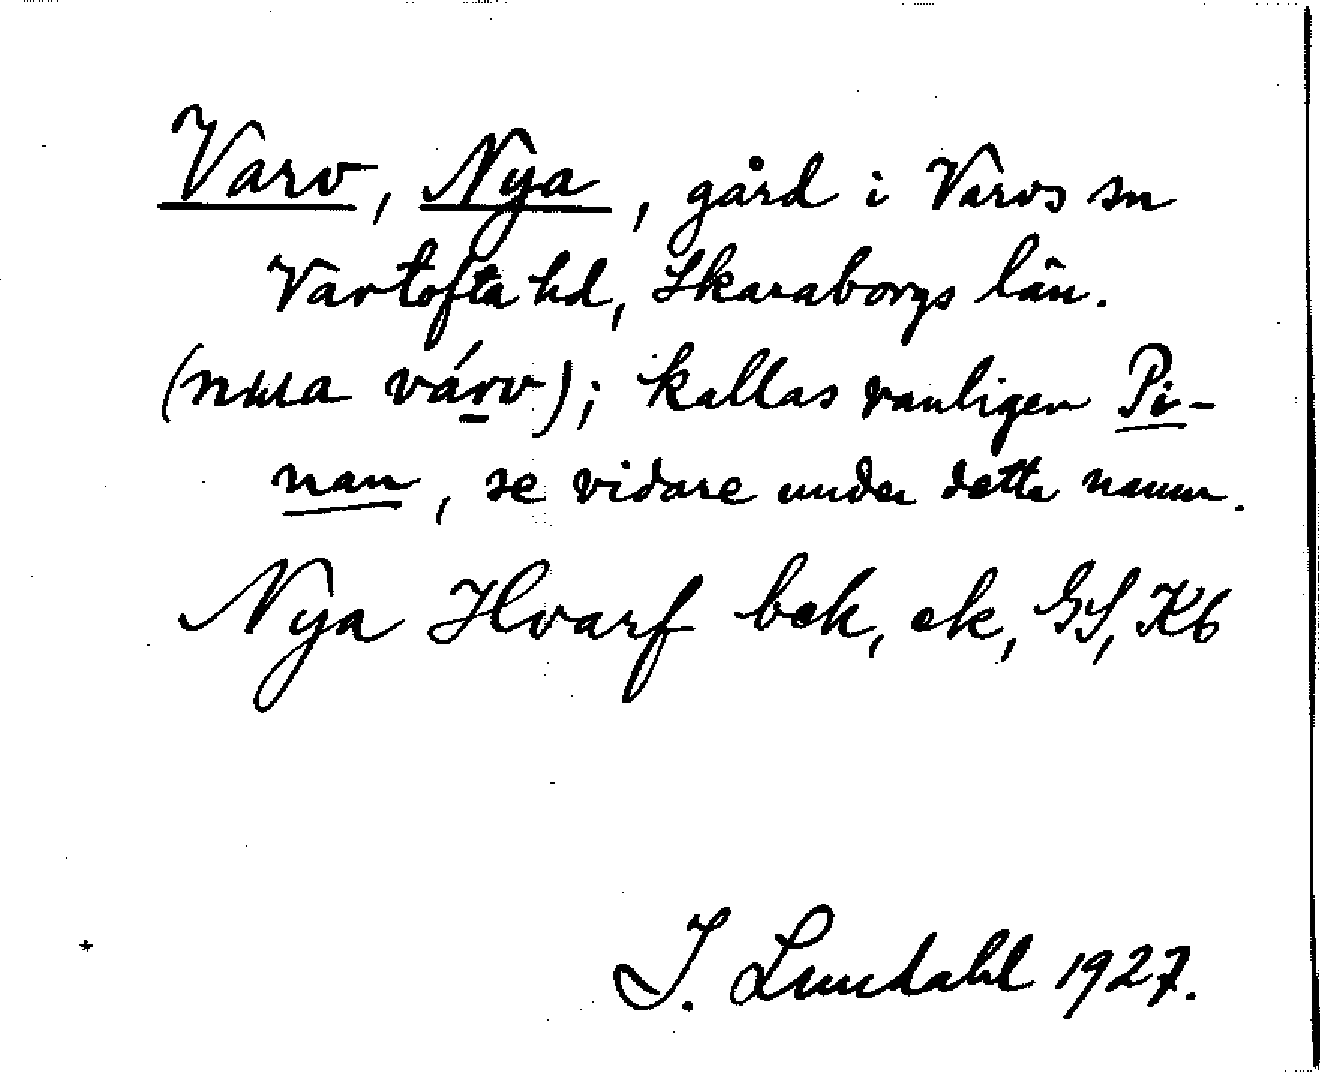 Varv, Nya, gård i Varvs sn
Vartofta hd, Skaraborgs län.
(nua várv); kallas vanligen Pi-
nan, se vidare under detta namn.
Nya Hvarf bek, ek, GS, Kb
I. Lundahl 1927.